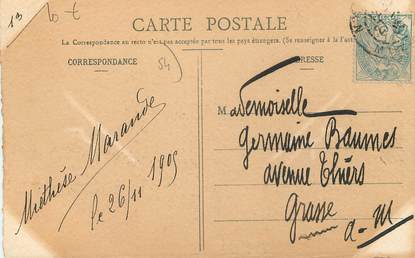 13
10 t
54
CARTE POSTALE
La Correspondance au recto n'est pas acceptée par tous les pays étrangers. (Se renseigner à la
CORRESPONDANCE
ADRESSE
Mademoiselle
Germaine Baumes
avenue Thiers
Grasse
a-M
Marande
le 26/11 1905